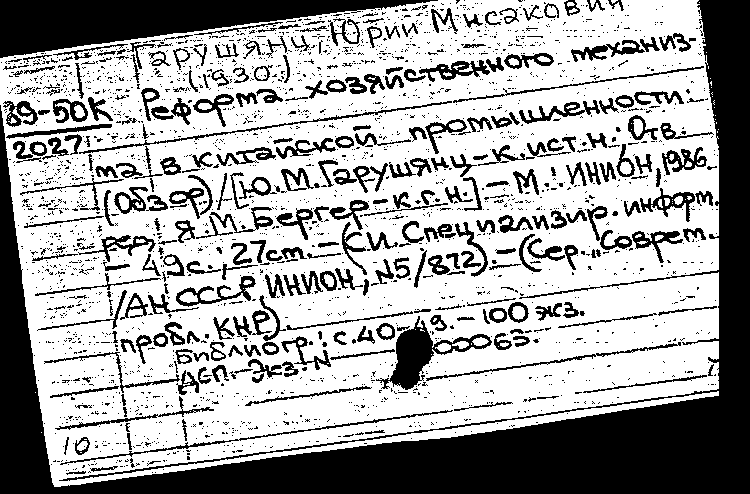 Гарушянц, Юрий Мисакович
(1930.)
89-50К
2027
Реформа хозяйственного механиз-
ма в китайской промышленности:
(Обзор) / [Ю.М. Гарушянц - к.ист.н.; Отв.
ред. Я.М. Бергер - к.г.н.] - М.: ИНИОН, 1986.
- 49с.; 27см. - (СИ. Специализир. информ.
/АН СССР, ИНИОН; N5/872). - (Сер. "Соврем.
пробл. КНР).
Библиогр.: с.40-49. - 100 экз.
ДСП. Экз. N 00063.
10.